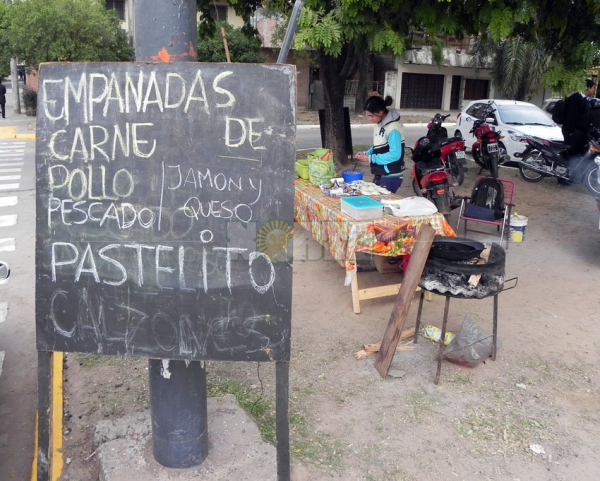 EMPANADAS
CARNE DE
POLLO
JAMON Y
PESCADO QUESO
PASTELITO
CALZONES